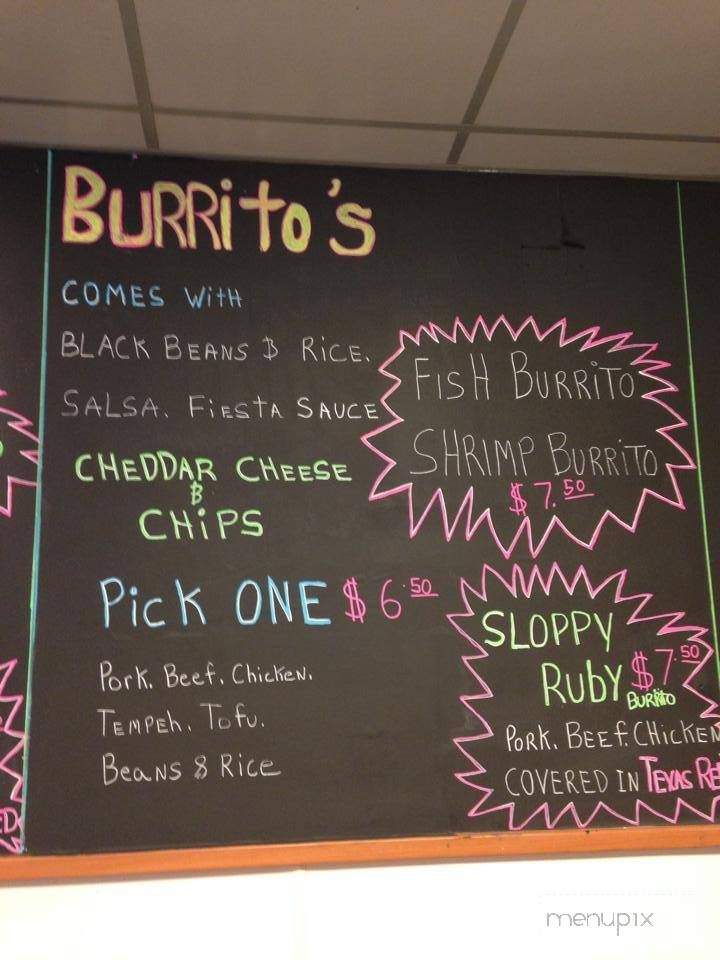 BURRiTO'S
COMES WiTH
BLACK BEANS & RiCE.
SALSA. FiESTA SAUCE
CHEDDAR CHEESE
&
CHiPS
Pick ONE $6.50
Pork. Beef. Chicken.
TEMPEH. Tofu.
Beans & Rice
FiSH BURRiTO
SHRIMP BURRiTO
$7.50
SLOPPY
RUBY $7.50
BURRiTO
PORK. BEEF. CHICKEN
COVERED IN TEXAS RE
ED
menupix